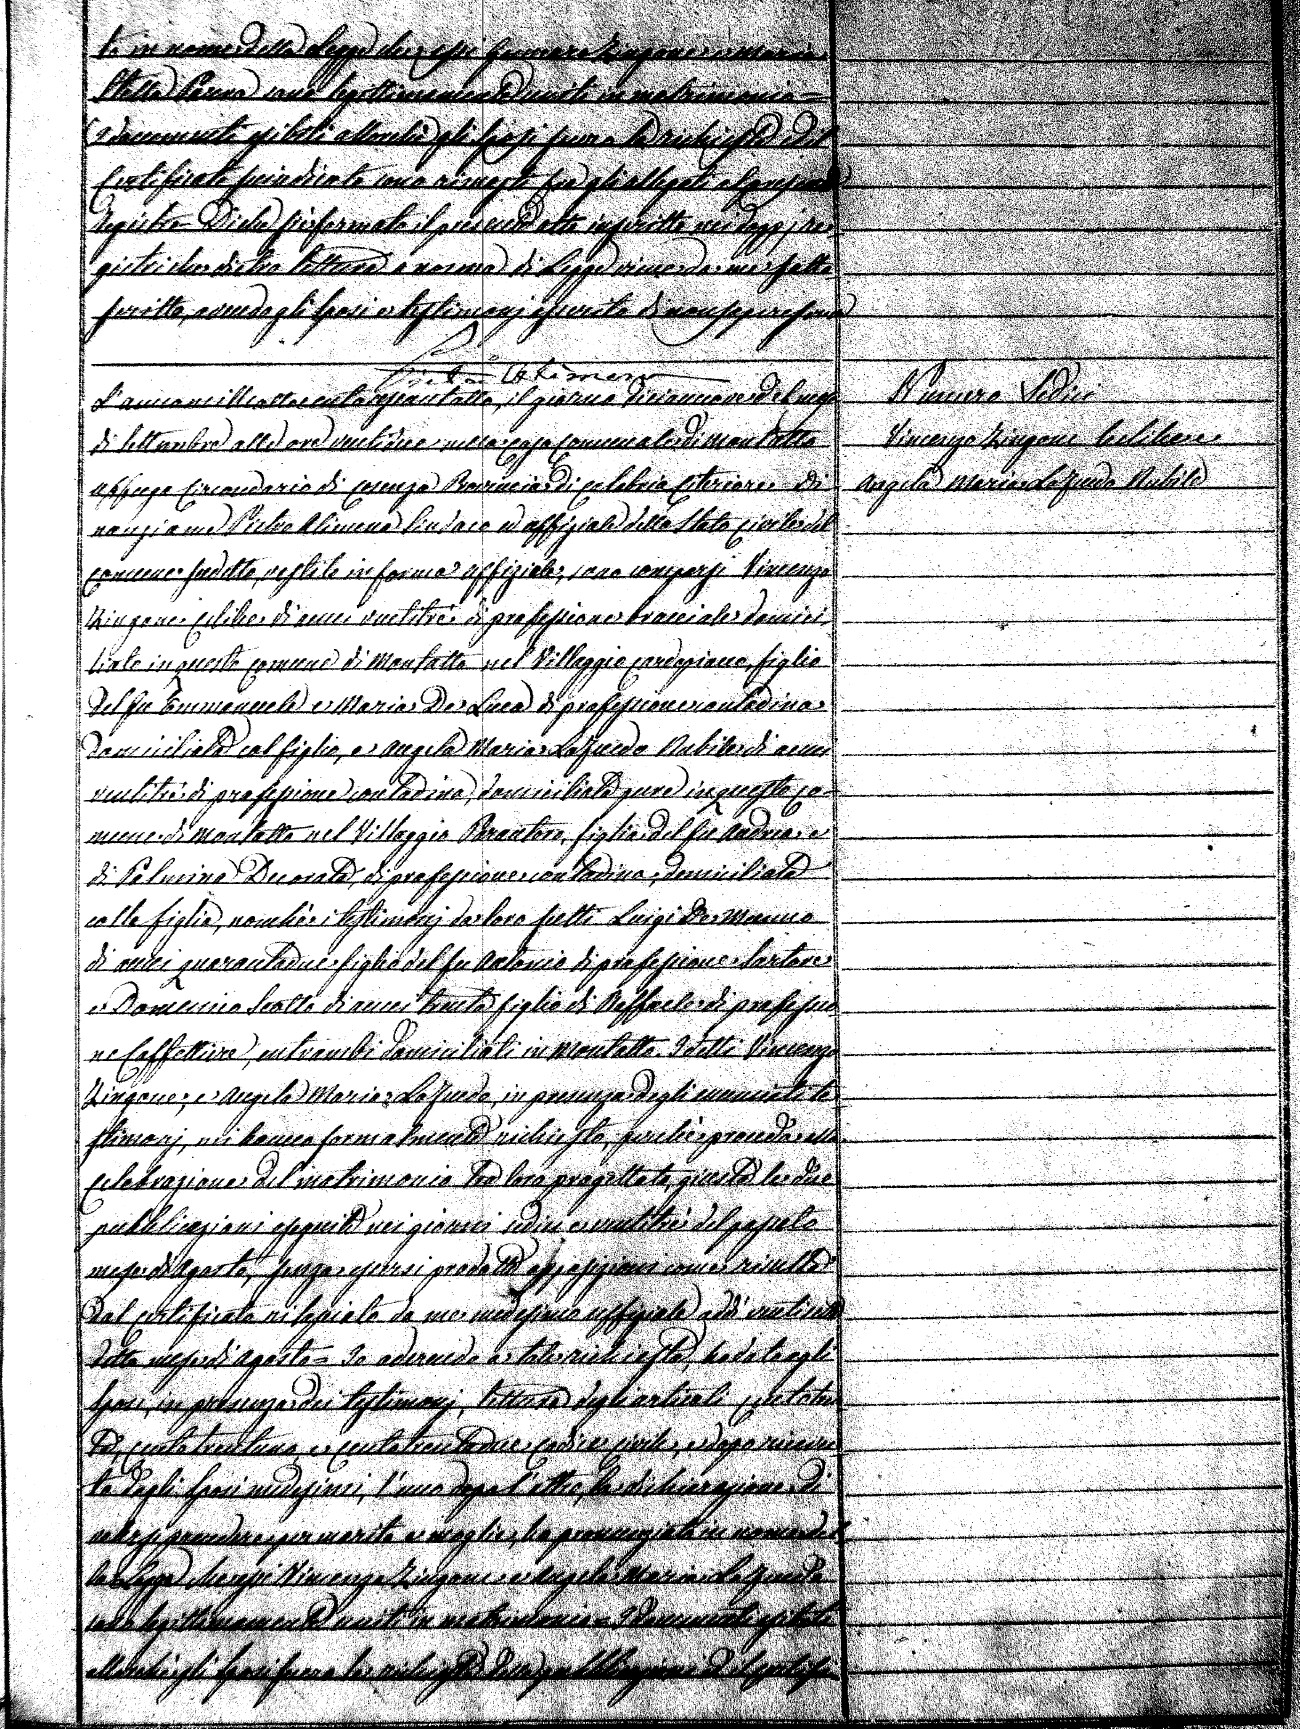 to in nome della Legge che essi Gennaro Zingone e Maria
Stella Perna sono legittimamente uniti in matrimonio =
I documenti esibiti allorchè gli sposi fecero la richiesta del
Certificato succitato sono rimasti fra gli allegati al presente
registro. Di che si è formato il presente atto inscritto nei doppj re=
gistri che dietro lettura a norma di Legge viene da me sotto
scritto, avendo gli sposi e testimonj asserito di non sapere firmare
Pietro Alimena
L'anno mille ottocento sessantotto, il giorno diciannove del mese
di Settembre alle ore ventidue nella casa Comunale di Montalto
Uffugo Circondario di Cosenza Provincia di Calabria Citeriore. Di
nanzi a me Pietro Alimena Sindaco ed uffiziale dello Stato Civile del
comune suddetto, vestito in forma uffiziale, sono comparsi Vincenzo
Zingone celibe di anni ventitrè di professione bracciale domici
liato in questo comune di Montalto nel Villaggio Caldopiano, figlio
del fu Emmanuele e Maria De Luca di professione contadina
domiciliata col figlio, e Angela Maria Lofeudo Nubile di anni
ventitrè di professione contadina, domiciliata pure in questo co=
mune di Montalto nel Villaggio Parantoro, figlia del fu Andrea e
di Palmina Decorata, di professione contadina, domiciliata
colla figlia, nonchè i testimonj da loro scelti Luigi De Munno
di anni quarantadue figlio del fu Antonio di professione Sartore
e Domenico Scotto di anni trenta figlio di Raffaele di professio
ne Caffettiere, entrambi domiciliati in Montalto. I detti Vincenzo
Zingone, e Angela Maria Lofeudo, in presenza degli enunciati te
stimonj, mi hanno formalmente richiesto, perchè proceda alla
celebrazione del matrimonio tra loro progettato, giusta le due
pubblicazioni eseguite nei giorni sedici e ventitrè del passato
mese di Agosto, senza essersi prodotta opposizioni come risulta
dal certificato rilasciato da me medesimo uffiziale addì
detto mese di Agosto = Io aderendo a tale richiesta, ho dato agli
sposi, in presenza dei testimonj, lettura degli articoli centotren
ta, centotrentuno, e centotrentadue codice civile, e dopo ricevu
to dagli sposi medesimi, l'uno dopo l'altro, la dichiarazione di
volersi prendere per marito e moglie, ho pronunziato in nome del
la Legge che essi Vincenzo Zingone e Angela Maria Lofeudo
sono legittimamente uniti in matrimonio = I documenti esibiti
allorchè gli sposi fecero la richiesta della pubblicazione ed il certifi
Numero Sedici
Vincenzo Zingone Celibe e
Angela Maria Lofeudo Nubile